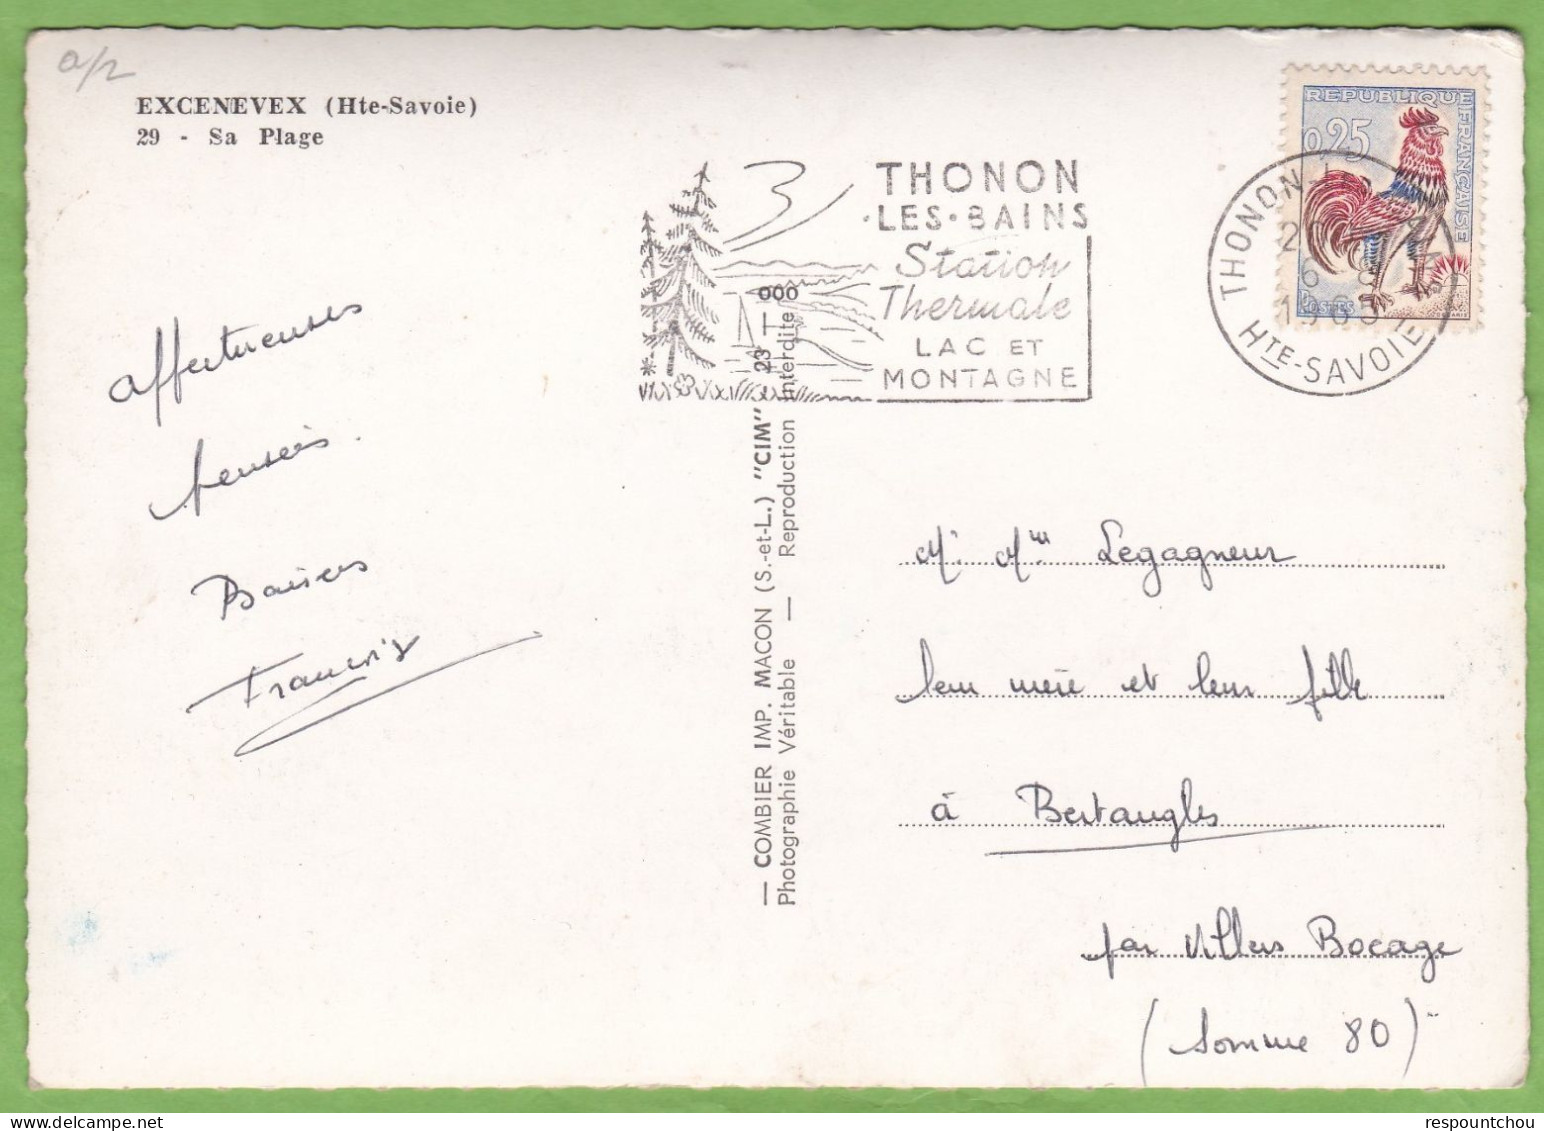 a/2
EXCENEVEX (Hte-Savoie)
29 - Sa Plage
THONON
·LES·BAINS
Station
Thermale
LAC ET
MONTAGNE
REPUBLIQUE FRANÇAISE
0,25
POSTES
THONON
6 8
1965
HTE-SAVOIE
affectueuses
pensées.
Baisers
Francis
— COMBIER IMP. MACON (S.-et-L.) "CIM" 23 — 000
Photographie Véritable — Reproduction Interdite
M. Mme Legagneur
leur mère et leur fille
à Bertangles
par Villers Bocage
(Somme 80)
respountchou